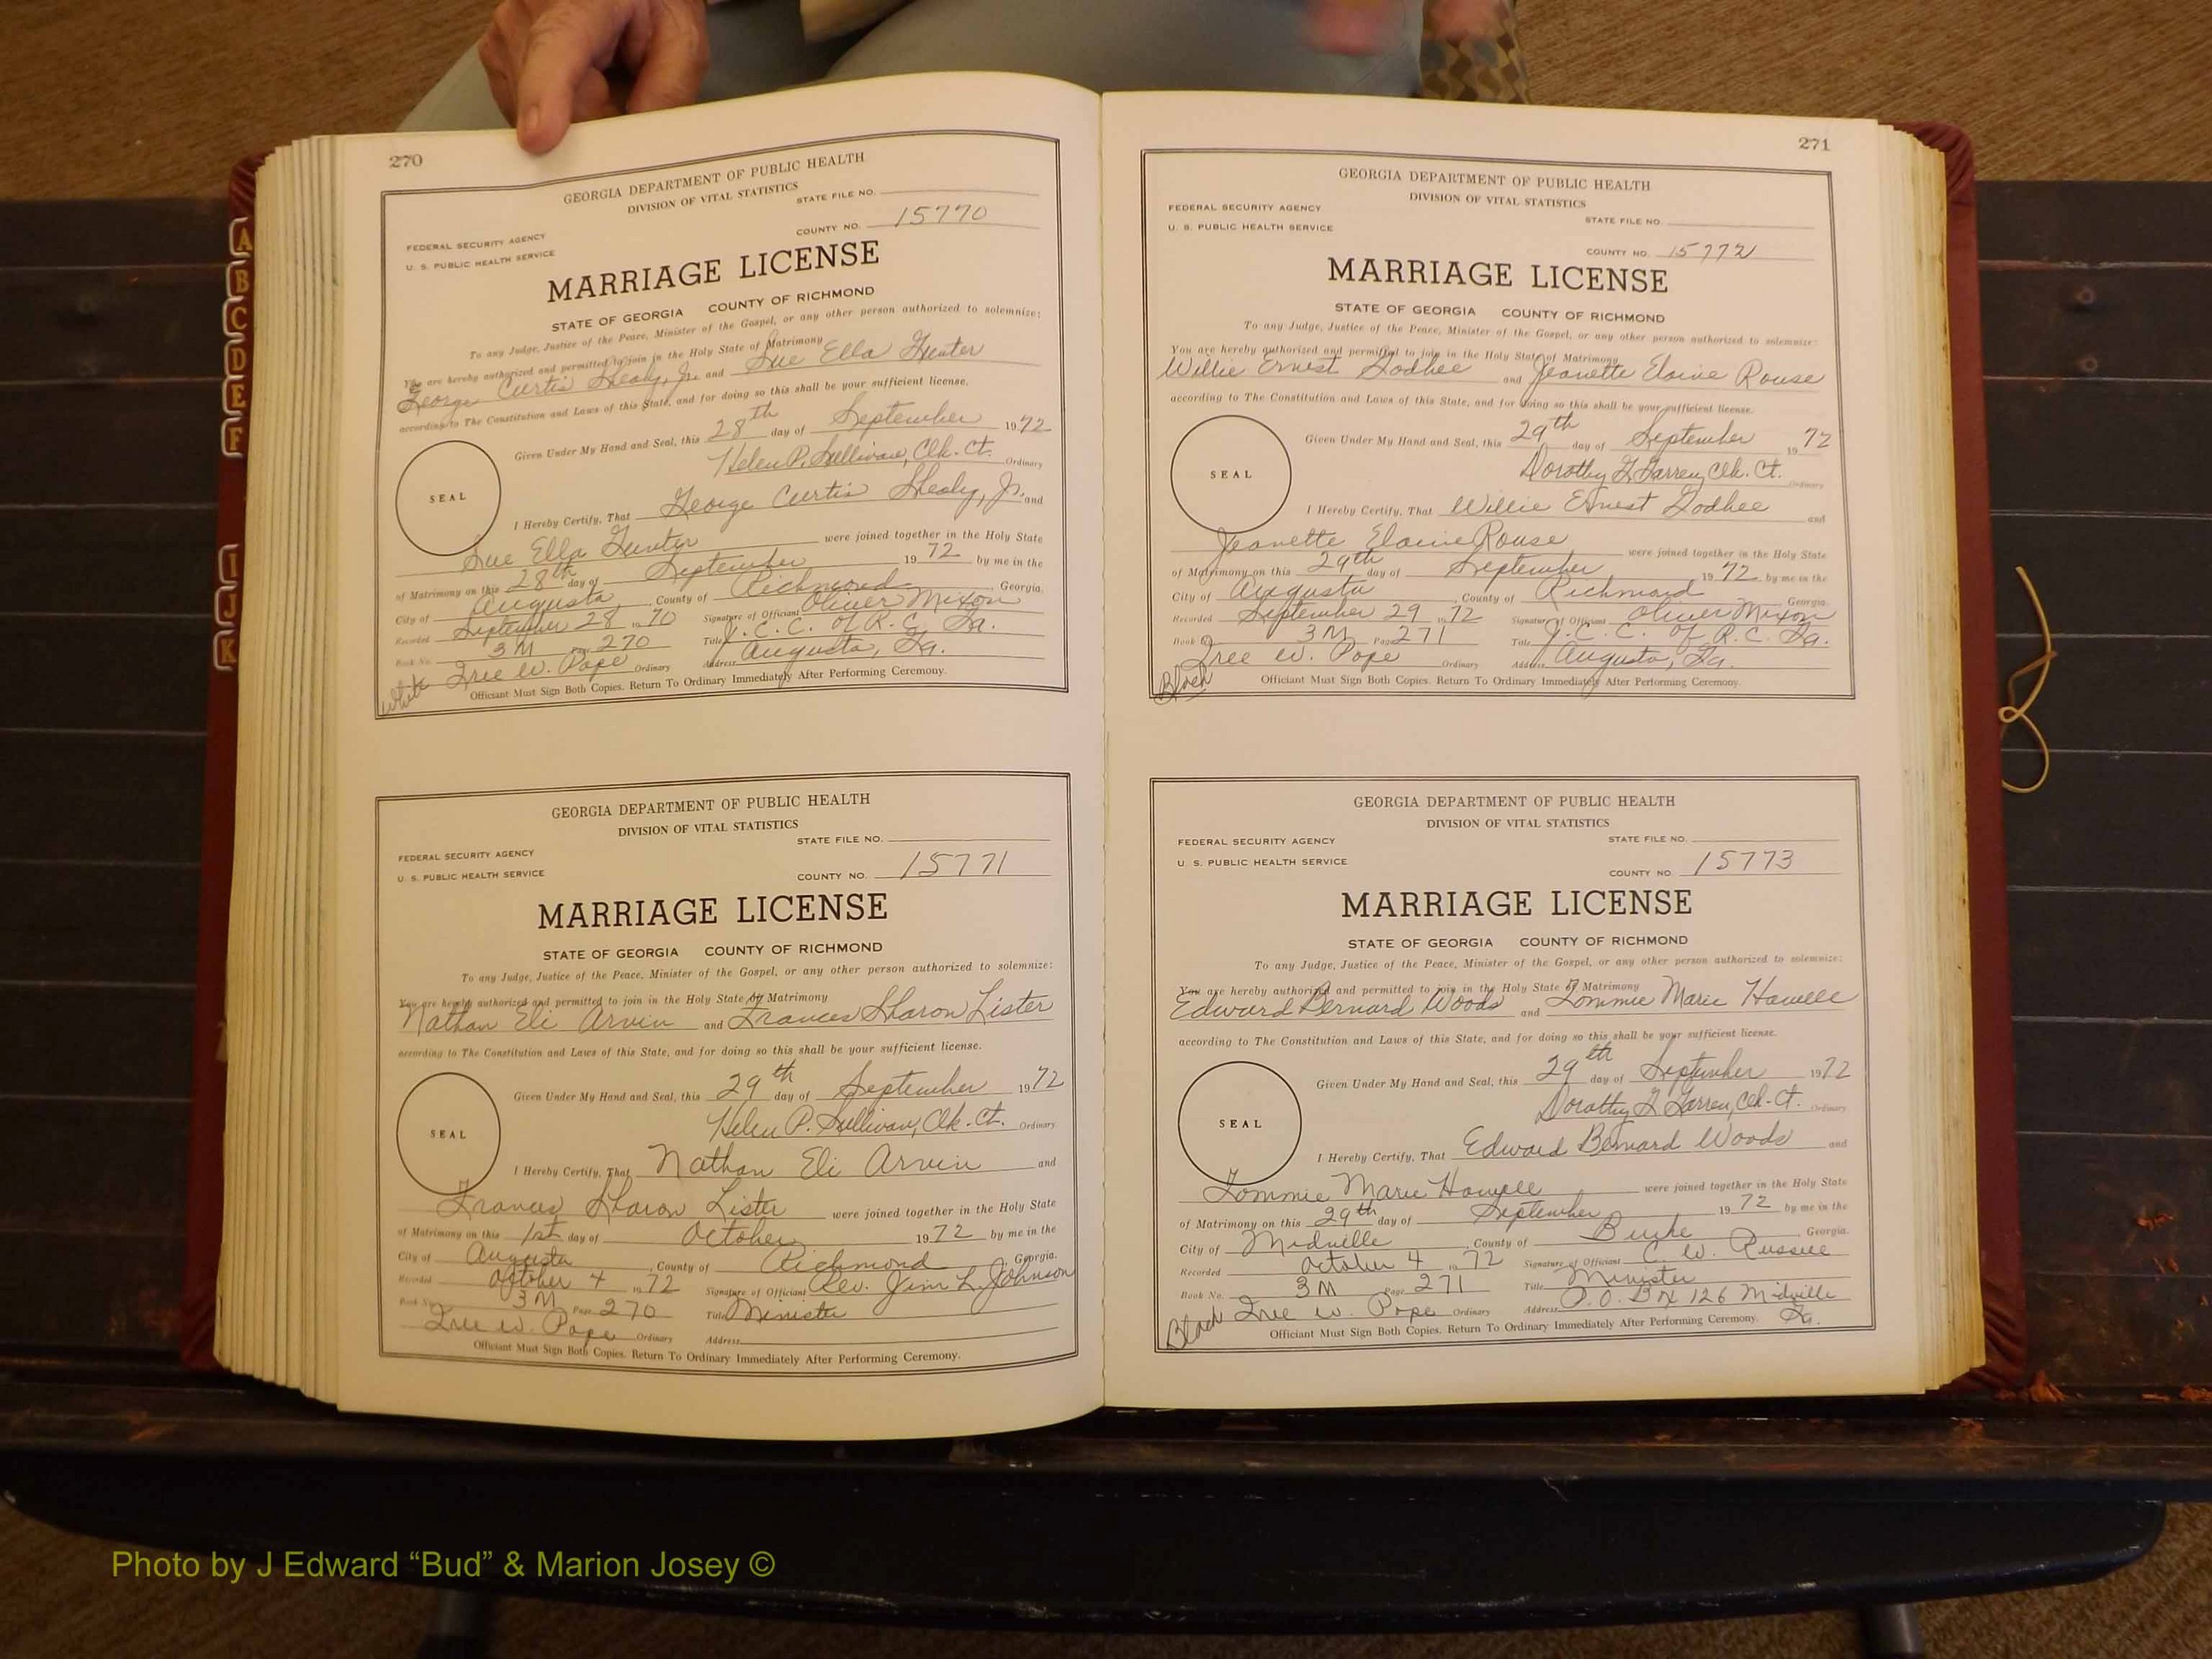 A
B
C
D
E
F
I
J
K
270
GEORGIA DEPARTMENT OF PUBLIC HEALTH
DIVISION OF VITAL STATISTICS
STATE FILE NO.
COUNTY NO. 15770
FEDERAL SECURITY AGENCY
U. S. PUBLIC HEALTH SERVICE
MARRIAGE LICENSE
STATE OF GEORGIA COUNTY OF RICHMOND
To any Judge, Justice of the Peace, Minister of the Gospel, or any other person authorized to solemnize:
You are hereby authorized and permitted to join in the Holy State of Matrimony
George Curtis Shealy, Jr. and Sue Ella Gunter
according to The Constitution and Laws of this State, and for doing so this shall be your sufficient license.
Given Under My Hand and Seal, this 28th day of September 1972
Helen P. Sullivan, Clk. Ct. Ordinary
SEAL
I Hereby Certify, That George Curtis Shealy, Jr. and
Sue Ella Gunter were joined together in the Holy State
of Matrimony on this 28th day of September 1972 by me in the
City of Augusta, County of Richmond, Georgia.
Recorded September 28 1970 Signature of Officiant Oliver Mixon
Book No. 3M Page 270 Title J. C. C. of R. C. Ga.
Tree W. Pope Ordinary Address Augusta, Ga.
White
Officiant Must Sign Both Copies. Return To Ordinary Immediately After Performing Ceremony.
GEORGIA DEPARTMENT OF PUBLIC HEALTH
DIVISION OF VITAL STATISTICS
STATE FILE NO.
FEDERAL SECURITY AGENCY
U. S. PUBLIC HEALTH SERVICE
COUNTY NO. 15771
MARRIAGE LICENSE
STATE OF GEORGIA COUNTY OF RICHMOND
To any Judge, Justice of the Peace, Minister of the Gospel, or any other person authorized to solemnize:
You are hereby authorized and permitted to join in the Holy State of Matrimony
Nathan Eli Arvin and Frances Sharon Lister
according to The Constitution and Laws of this State, and for doing so this shall be your sufficient license.
Given Under My Hand and Seal, this 29th day of September 1972
Helen P. Sullivan, Clk. Ct. Ordinary
SEAL
I Hereby Certify, That Nathan Eli Arvin and
Frances Sharon Lister were joined together in the Holy State
of Matrimony on this 1st day of October 1972 by me in the
City of Augusta, County of Richmond, Georgia.
Recorded October 4 1972 Signature of Officiant Rev. Jim L. Johnson
Book No. 3M Page 270 Title Minister
Tree W. Pope Ordinary Address
Officiant Must Sign Both Copies. Return To Ordinary Immediately After Performing Ceremony.
271
GEORGIA DEPARTMENT OF PUBLIC HEALTH
DIVISION OF VITAL STATISTICS
FEDERAL SECURITY AGENCY
U. S. PUBLIC HEALTH SERVICE
STATE FILE NO.
COUNTY NO. 15772
MARRIAGE LICENSE
STATE OF GEORGIA COUNTY OF RICHMOND
To any Judge, Justice of the Peace, Minister of the Gospel, or any other person authorized to solemnize:
You are hereby authorized and permitted to join in the Holy State of Matrimony
Willie Ernest Godbee and Jeanette Elaine Rouse
according to The Constitution and Laws of this State, and for doing so this shall be your sufficient license.
Given Under My Hand and Seal, this 29th day of September 1972
Dorothy Clk. Ct. Ordinary
SEAL
I Hereby Certify, That Willie Ernest Godbee and
Jeanette Elaine Rouse were joined together in the Holy State
of Matrimony on this 29th day of September 1972 by me in the
City of Augusta, County of Richmond Georgia.
Recorded September 29 1972 Signature of Officiant Oliver Mixon
Book No. 3M Page 271 Title J. C. C. of R. C. Ga.
Tree W. Pope Ordinary Address Augusta, Ga.
Black
Officiant Must Sign Both Copies. Return To Ordinary Immediately After Performing Ceremony.
GEORGIA DEPARTMENT OF PUBLIC HEALTH
DIVISION OF VITAL STATISTICS
FEDERAL SECURITY AGENCY
U. S. PUBLIC HEALTH SERVICE
STATE FILE NO.
COUNTY NO. 15773
MARRIAGE LICENSE
STATE OF GEORGIA COUNTY OF RICHMOND
To any Judge, Justice of the Peace, Minister of the Gospel, or any other person authorized to solemnize:
You are hereby authorized and permitted to join in the Holy State of Matrimony
Edward Bernard Woods and Tommie Marie Howell
according to The Constitution and Laws of this State, and for doing so this shall be your sufficient license.
Given Under My Hand and Seal, this 29th day of September 1972
Dorothy Clk. Ct. Ordinary
SEAL
I Hereby Certify, That Edward Bernard Woods and
Tommie Marie Howell were joined together in the Holy State
of Matrimony on this 29th day of September 1972 by me in the
City of Midville, County of Burke, Georgia.
Recorded October 4 1972 Signature of Officiant C. W. Russell
Book No. 3M Page 271 Title Minister
Black Tree W. Pope Ordinary Address P.O. Box 126 Midville Ga.
Officiant Must Sign Both Copies. Return To Ordinary Immediately After Performing Ceremony.
Photo by J Edward “Bud” & Marion Josey ©